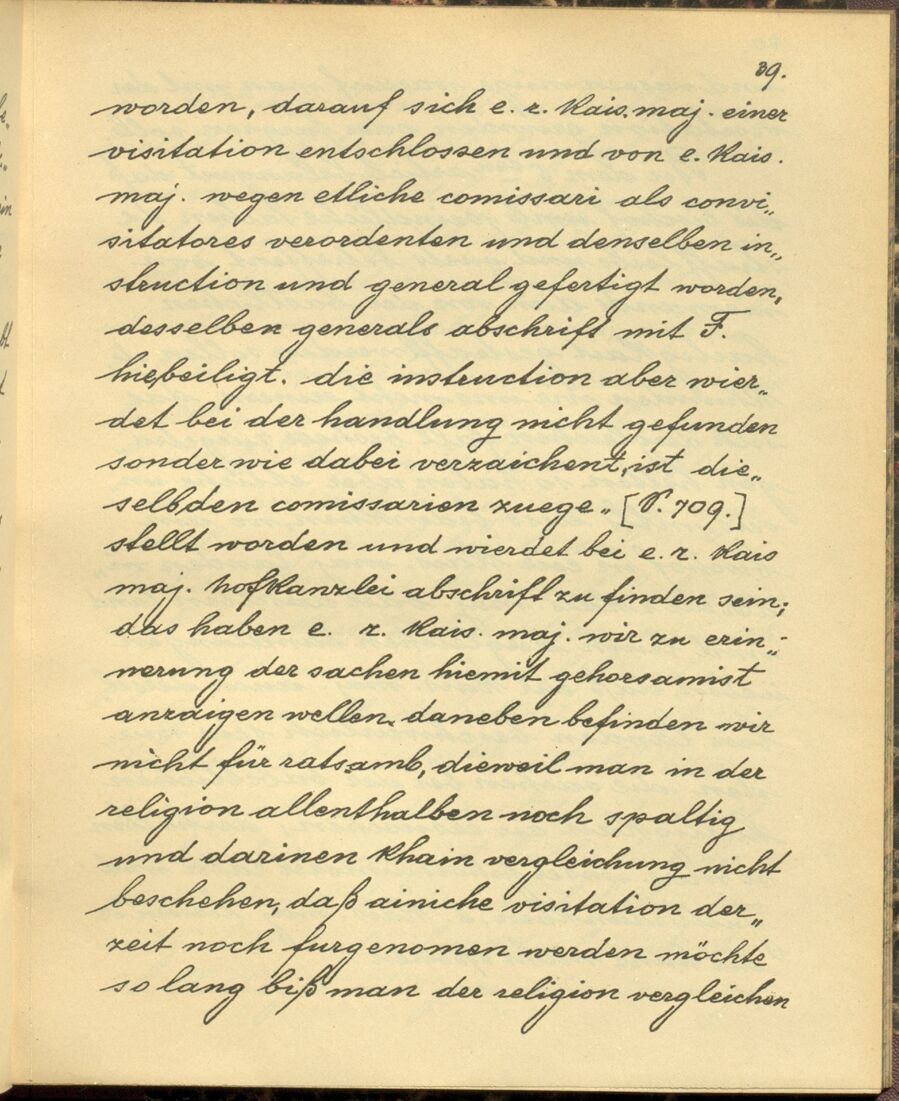 39.
worden, darauf sich e. r. Kais. maj. einer
visitation entschlossen und von e. Kais.
maj. wegen etliche comissari als convi„
sitatores verordenten und denselben in„
struction und general gefertigt worden,
desselben generals abschrift mit F.
hiebeiligt. die instruction aber wier„
det bei der handlung nicht gefunden
sonder wie dabei verzaichent, ist die„
selb den comissarien zuege„ [S. 709.]
stellt worden und wierdet bei e. r. Kais
maj. hofkanzlei abschrift zu finden sein;
das haben e. r. Kais. maj. wir zu erin„
nerung der sachen hiemit gehorsamist
anzaigen wellen. daneben befinden wir
nicht für ratsamb, dieweil man in der
religion allenthalben noch spaltig
und darinen khain vergleichung nicht
beschehen, daß ainiche visitation der„
zeit noch furgenomen werden möchte
so lang biß man der religion vergleichen